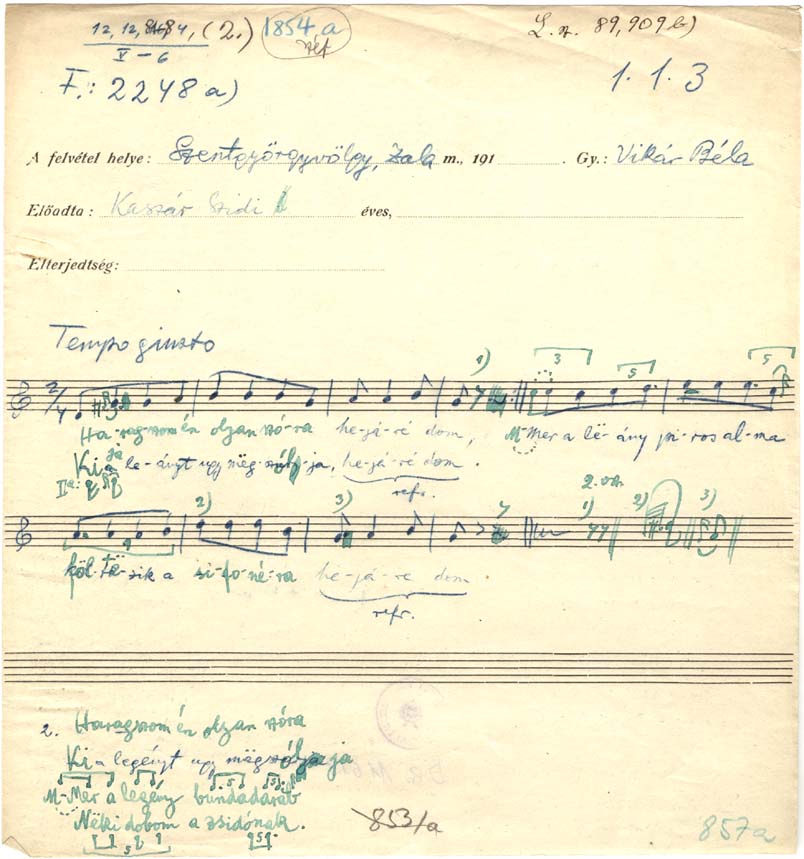 12, 12, 8+8 4, (2.) 1854,a L. sz. 89,909 b)
V – 6
F.: 2248 a) 1. 1. 3
A felvétel helye: Szentgyörgyvölgy, Zala m., 191 . Gy.: Vikár Béla
Előadta: Kaszár Szidi éves,
Elterjedtség:
Tempo giusto
1) 3 5 5
2/4
Ha-ragszom én olyan szó-ra he-já-ré dom, M-Mer a lë-ány pi-ros al-ma
Ki a le-ányt ugy mëg-szól-ja, he-já-ré dom.
refr.
2. vsz.
2) 3) 1) 2) 3)
köl-tö-zik a si-fo-né-ra hé-já-re dom
refr.
2. Haragszom én olyan szóra
Ki a legényt ugy mëgszólja
M-Mer a legény bundadarab
Nëki dobom a zsidónak.
853/a 857a